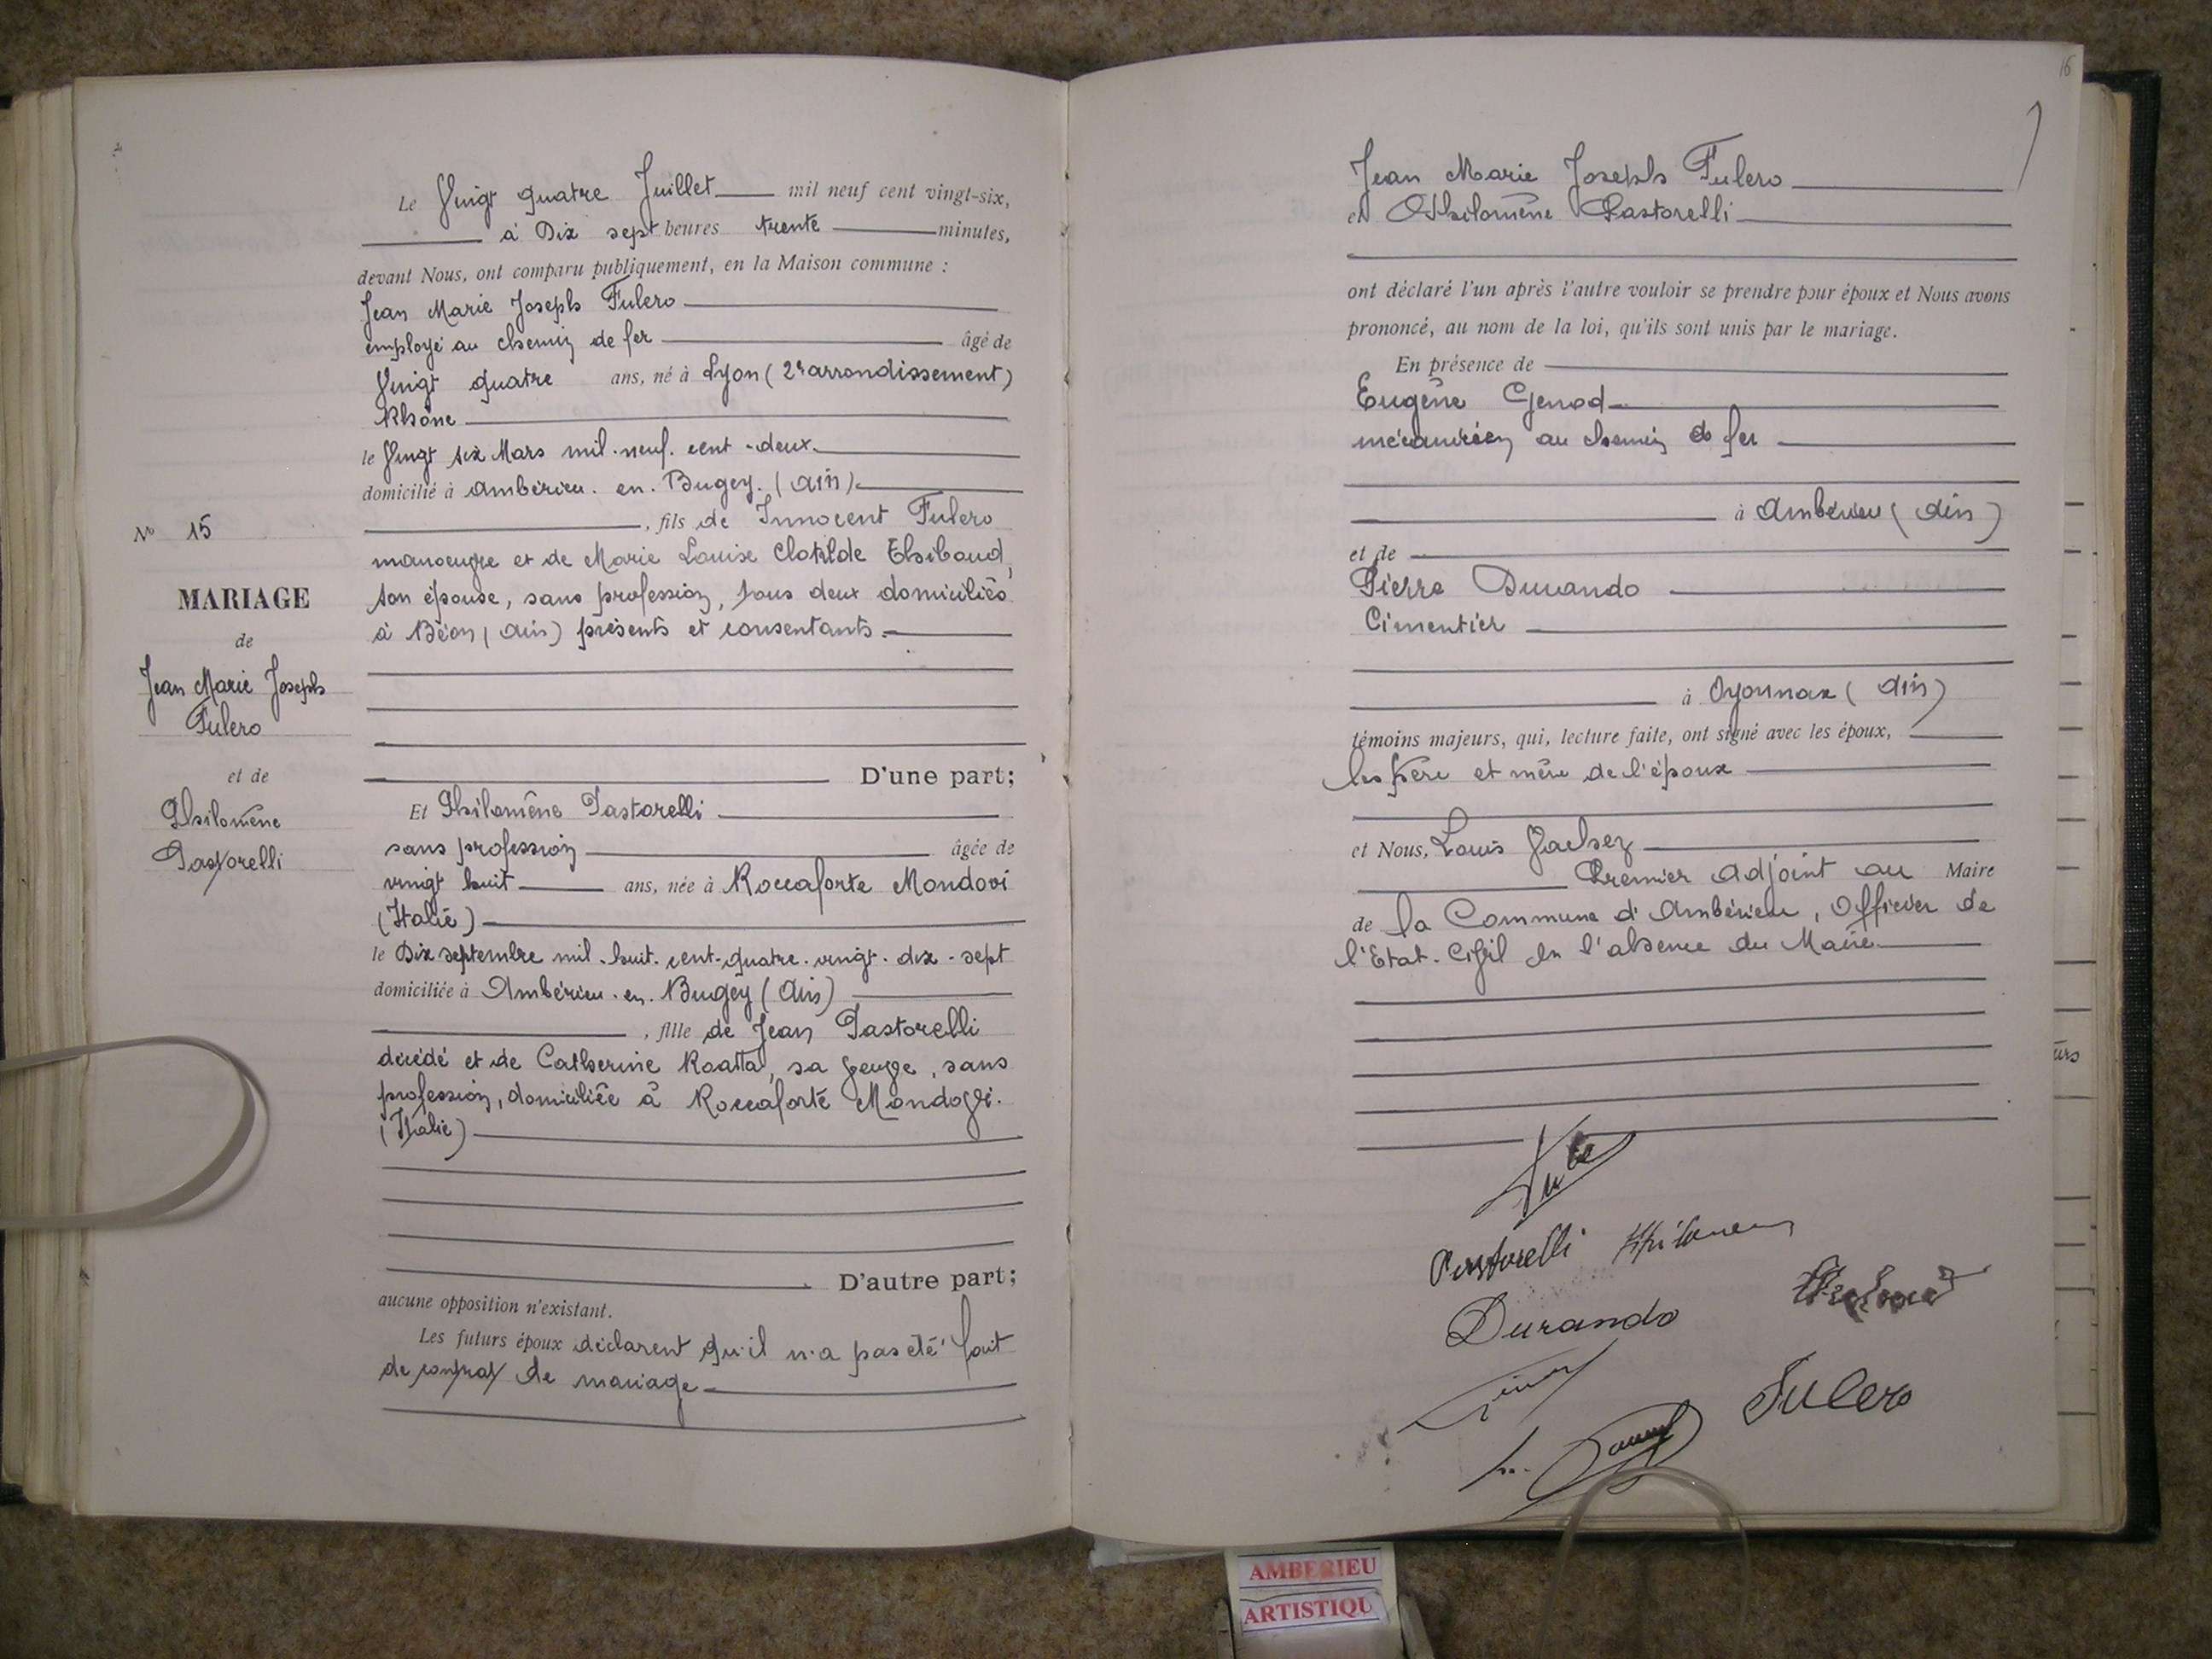 Le Vingt quatre Juillet mil neuf cent vingt-six,
à Dix sept heures trente minutes,
devant Nous, ont comparu publiquement, en la Maison commune :
Jean Marie Joseph Fulero
employé au chemin de fer âgé de
Vingt quatre ans, né à Lyon (2e arrondissement)
Rhône
le Vingt six Mars mil.neuf.cent-deux.
domicilié à Ambérieu.en.Bugey.(Ain).
, fils de Innocent Fulero
manoeuvre et de Marie Louise Clotilde Thibaud,
son épouse, sans profession, tous deux domiciliés
à Béon (Ain) présents et consentants.
D'une part;
No 15
MARIAGE
de
Jean Marie Joseph
Fulero
et de
Philomène
Pastorelli
Et Philomène Pastorelli
sans profession âgée de
vingt huit ans, née à Roccaforte Mondovi
(Italie)
le Dix septembre mil.huit.cent-quatre.vingt.dix-sept
domiciliée à Ambérieu.en.Bugey (Ain)
, fille de Jean Pastorelli
décédé et de Catherine Roatta, sa veuve, sans
profession, domiciliée à Roccaforte Mondovi.
(Italie)
D'autre part;
aucune opposition n'existant.
Les futurs époux déclarent qu'il n'a pas été fait
de contrat de mariage
16
Jean Marie Joseph Fulero
et Philomène Pastorelli
ont déclaré l'un après l'autre vouloir se prendre pour époux et Nous avons
prononcé, au nom de la loi, qu'ils sont unis par le mariage.
En présence de
Eugène Genod
mécanicien au chemin de fer
à Ambérieu (Ain)
et de
Pierre Durando
Cimentier
à Oyonnax (Ain)
témoins majeurs, qui, lecture faite, ont signé avec les époux,
les père et mère de l'époux
et Nous, Louis
Premier Adjoint au Maire
de la Commune d'Ambérieu, Officier de
l'Etat-Civil en l'absence du Maire
Pastorelli
Durando
Fulero
AMBERIEU
ARTISTIQU